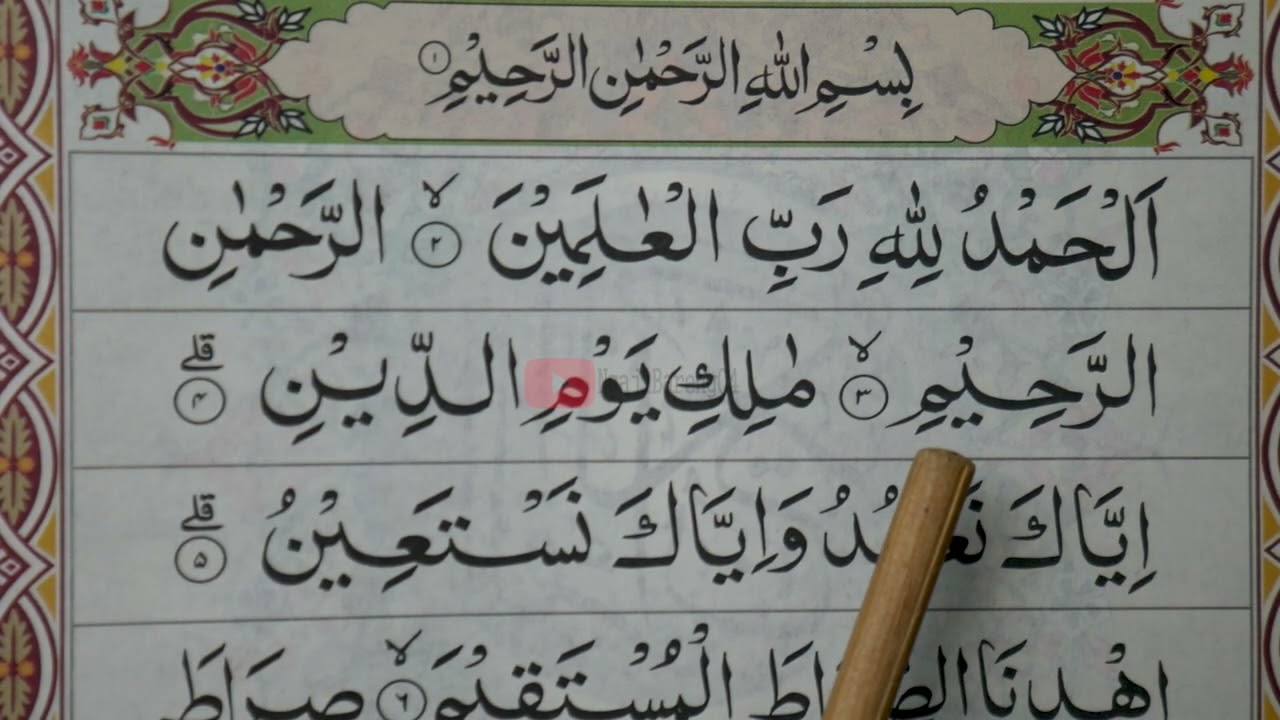 بِسْمِ اللّٰهِ الرَّحْمٰنِ الرَّحِيْمِ ١
اَلْحَمْدُ لِلّٰهِ رَبِّ الْعٰلَمِيْنَ ۙ ٢ الرَّحْمٰنِ
الرَّحِيْمِ ۙ ٣ مٰلِكِ يَوْمِ الدِّيْنِ ۗ ٤
اِيَّاكَ نَعْبُدُ وَاِيَّاكَ نَسْتَعِيْنُ ۗ ٥
اِهْدِنَا الصِّرَاطَ الْمُسْتَقِيْمَ ۙ ٦ صِرَاطَ